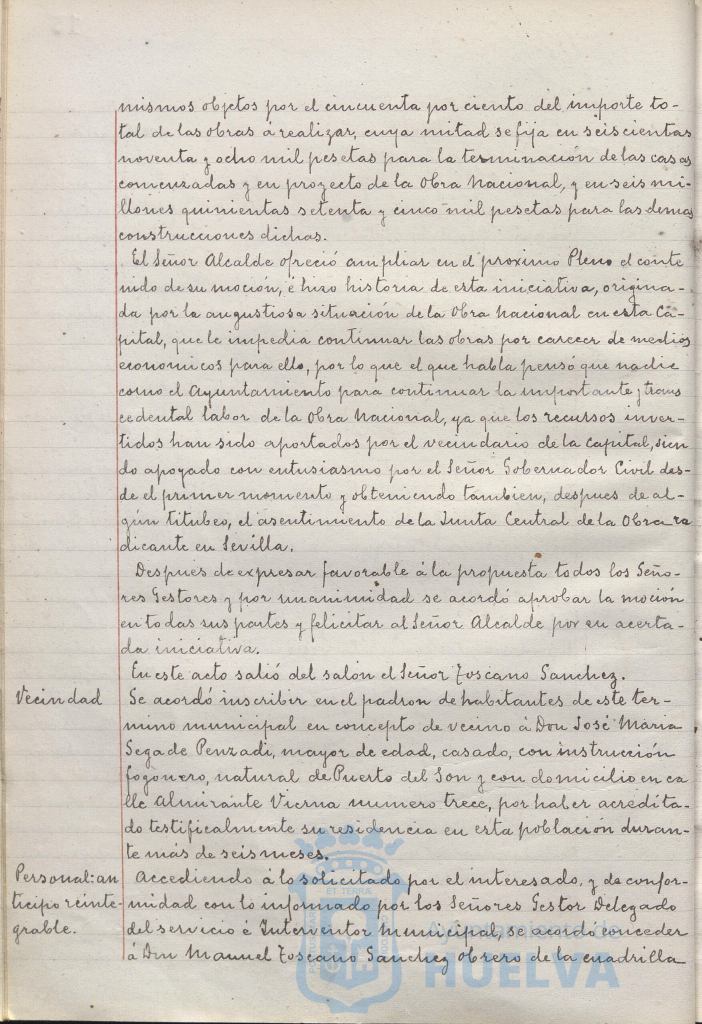 mismos objetos por el cincuenta por ciento del importe to-
tal de las obras á realizar, cuya mitad se fija en seiscientas
noventa y ocho mil pesetas para la terminación de las casas
comenzadas y en proyecto de la Obra Nacional, y en seis mi-
llones quinientas setenta y cinco mil pesetas para las demas
construcciones dichas.
El Señor Alcalde ofreció ampliar en el proximo Pleno el conte
nido de su moción, é hizo historia de esta iniciativa, origina-
da por la angustiosa situación de la Obra Nacional en esta Ca-
pital, que le impedia continuar las obras por carecer de medios
economicos para ello, por lo que el que habla pensó que nadie
como el Ayuntamiento para continuar la importante y trans
cedental labor de la Obra Nacional, ya que los recursos inver-
tidos han sido aportados por el vecindario de la capital, sien
do apoyado con entusiasmo por el Señor Gobernador Civil des-
de el primer momento y obteniendo tambien, despues de al-
gún titubeo, el asentimiento de la Junta Central de la Obra ra
dicante en Sevilla.
Despues de expresar favorable á la propuesta todos los Seño-
res Gestores y por unanimidad se acordó aprobar la moción
en todas sus partes y felicitar al Señor Alcalde por su acerta-
da iniciativa.
En este acto salió del salón el Señor Toscano Sanchez.
Vecindad
Se acordó inscribir en el padron de habitantes de este ter-
mino municipal en concepto de vecino á Don José Maria
Segade Penzadi, mayor de edad, casado, con instrucción
fogonero, natural de Puerto del Son y con domicilio en ca
lle Almirante Vierna numero trece, por haber acredita-
do testificalmente su residencia en esta población duran-
te más de seis meses.
Personal: an
ticipo reinte-
grable.
Accediendo á lo solicitado por el interesado, y de confor-
midad con lo informado por los Señores Gestor Delegado
del servicio é Interventor Municipal, se acordo conceder
á Don Manuel Toscano Sanchez obrero de la cuadrilla
Ayuntamiento de
HUELVA